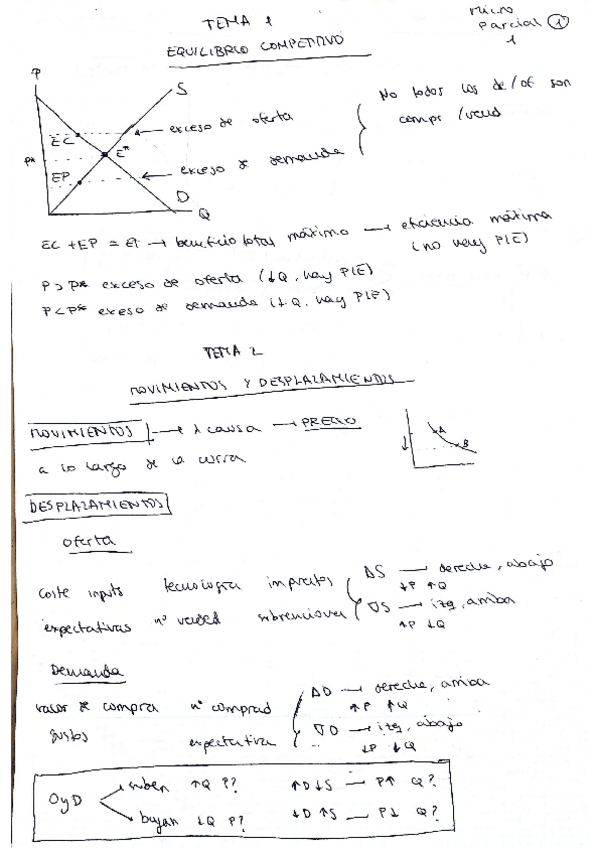 TEMA 1
EQUILIBRIO COMPETITIVO
micro
parcial 1
1
P
S
EC
E*
P*
EP
D
Q
exceso de oferta
exceso de demanda
No todos los de/of son
compr /vend
EC + EP = ET → beneficio total máximo → eficiencia máxima
(no hay P|E)
P > P* exceso de oferta (↓Q, hay P|E)
P < P* exeso de demanda (↓Q, hay P|E)
TEMA 2
MOVIMIENTOS Y DESPLAZAMIENTOS
MOVIMIENTOS → 1 causa → PRECIO
a lo largo de la curva
A
B
DESPLAZAMIENTOS
Oferta
coste inputs tecnología impuestos
expectativas nº vended subvenciones
ΔS → derecha, abajo
↓P ↑Q
∇S → izq, arriba
↑P ↓Q
Demanda
valor de compra nº comprad
gustos expectativa
ΔD → derecha, arriba
↑P ↑Q
∇D → izq, abajo
↓P ↓Q
O y D
suben ↑Q P?
bajan ↓Q P?
↑D ↓S — P↑ Q?
↓D ↑S — P↓ Q?